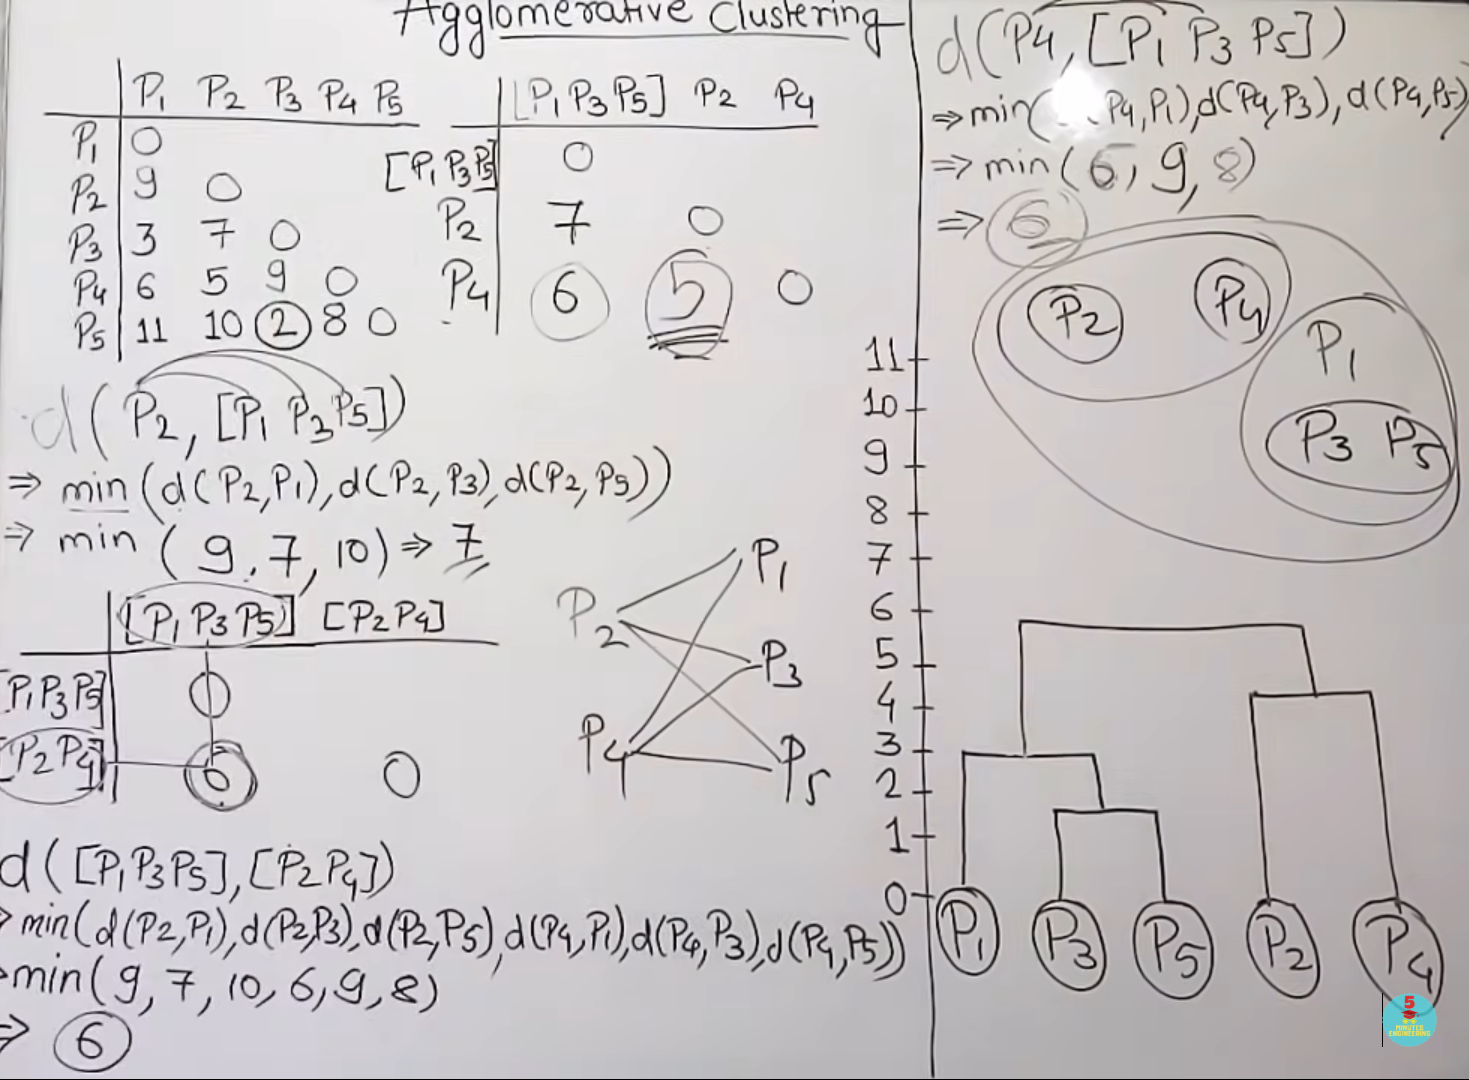 Agglomerative Clustering
P1 P2 P3 P4 P5
P1 0
P2 9 0
P3 3 7 0
P4 6 5 9 0
P5 11 10 2 8 0
[P1 P3 P5] P2 P4
[P1 P3 P5] 0
P2 7 0
P4 6 5 0
d(P2, [P1 P3 P5])
⇒ min (d(P2,P1), d(P2,P3), d(P2,P5))
⇒ min (9, 7, 10) ⇒ 7
[P1 P3 P5] [P2 P4]
[P1 P3 P5] 0
[P2 P4] 6 0
P2
P4
P1
P3
P5
d([P1 P3 P5], [P2 P4])
min(d(P2,P1), d(P2,P3), d(P2,P5), d(P4,P1), d(P4,P3), d(P4,P5))
min(9, 7, 10, 6, 9, 8)
⇒ 6
d(P4, [P1 P3 P5])
⇒ min( P4,P1), d(P4,P3), d(P4,P5)
⇒ min(6, 9, 8)
⇒ 6
P2 P4
P1
P3 P5
11
10
9
8
7
6
5
4
3
2
1
0
P1 P3 P5 P2 P4
5
MINUTES
ENGINEERING